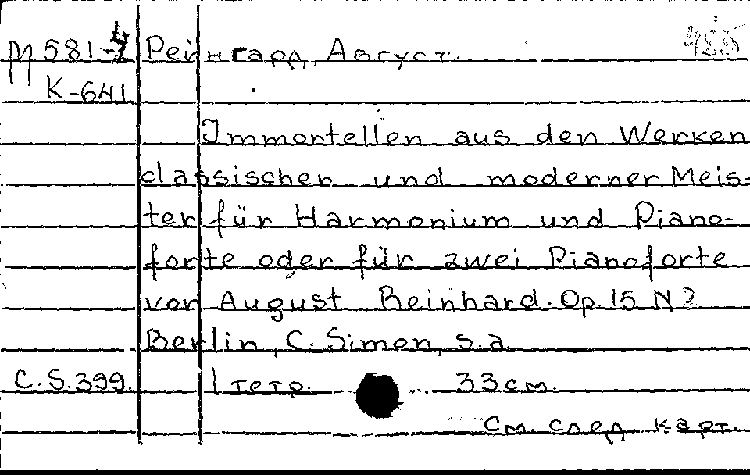 М 581-4 Рейнгард, Август.
К-641
Immortellen aus den Werken
classischer und moderner Meis-
ter für Harmonium und Piano-
forte oder für zwei Pianoforte
von August Reinhard. Op. 15 N
Berlin, C. Simon, s.a.
C.S.399. 1 тетр. 33 см.
См. след. карт.